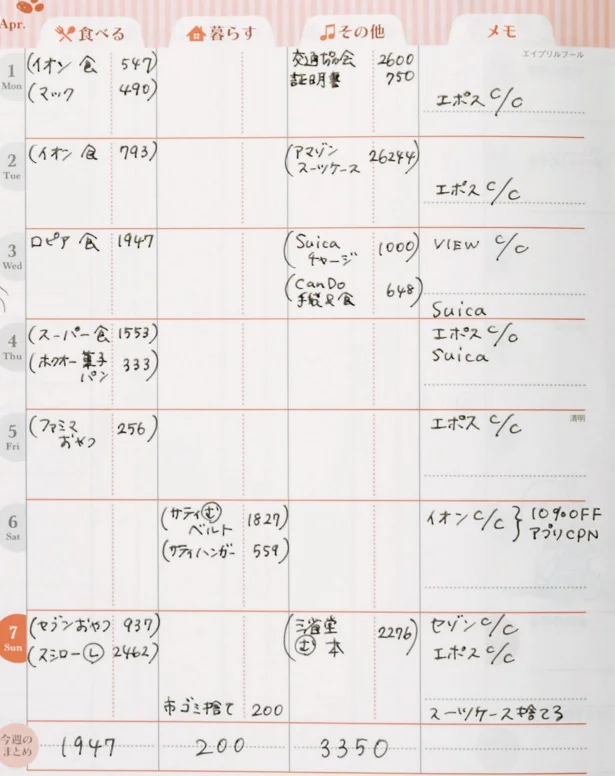 Apr.
食べる 暮らす その他 メモ
エイプリルフール
1 Mon
(イオン 食 547)
(マック 490)
交通協会 2600
証明書 750
エポス C/C
2 Tue
(イオン 食 793)
(アマゾン
スーツケース 26244)
エポス C/C
3 Wed
ロピア 食 1947
(Suica
チャージ 1000)
(CanDo
手袋&食 648)
VIEW C/C
Suica
4 Thu
(スーパー食 1553)
(ホクオー菓子
パン 333)
エポス C/C
Suica
5 Fri
(ファミマ
おやつ 256)
エポス C/C
清明
6 Sat
(サティむ
ベルト 1827)
(サティハンガー 559)
イオン C/C } 10%OFF
アプリCPN
7 Sun
(セブンおやつ 937)
(スシローL 2462)
市ゴミ捨て 200
(三省堂
む 本 2276)
セゾン C/C
エポス C/C
スーツケース捨てる
今週の
まとめ
1947 200 3350